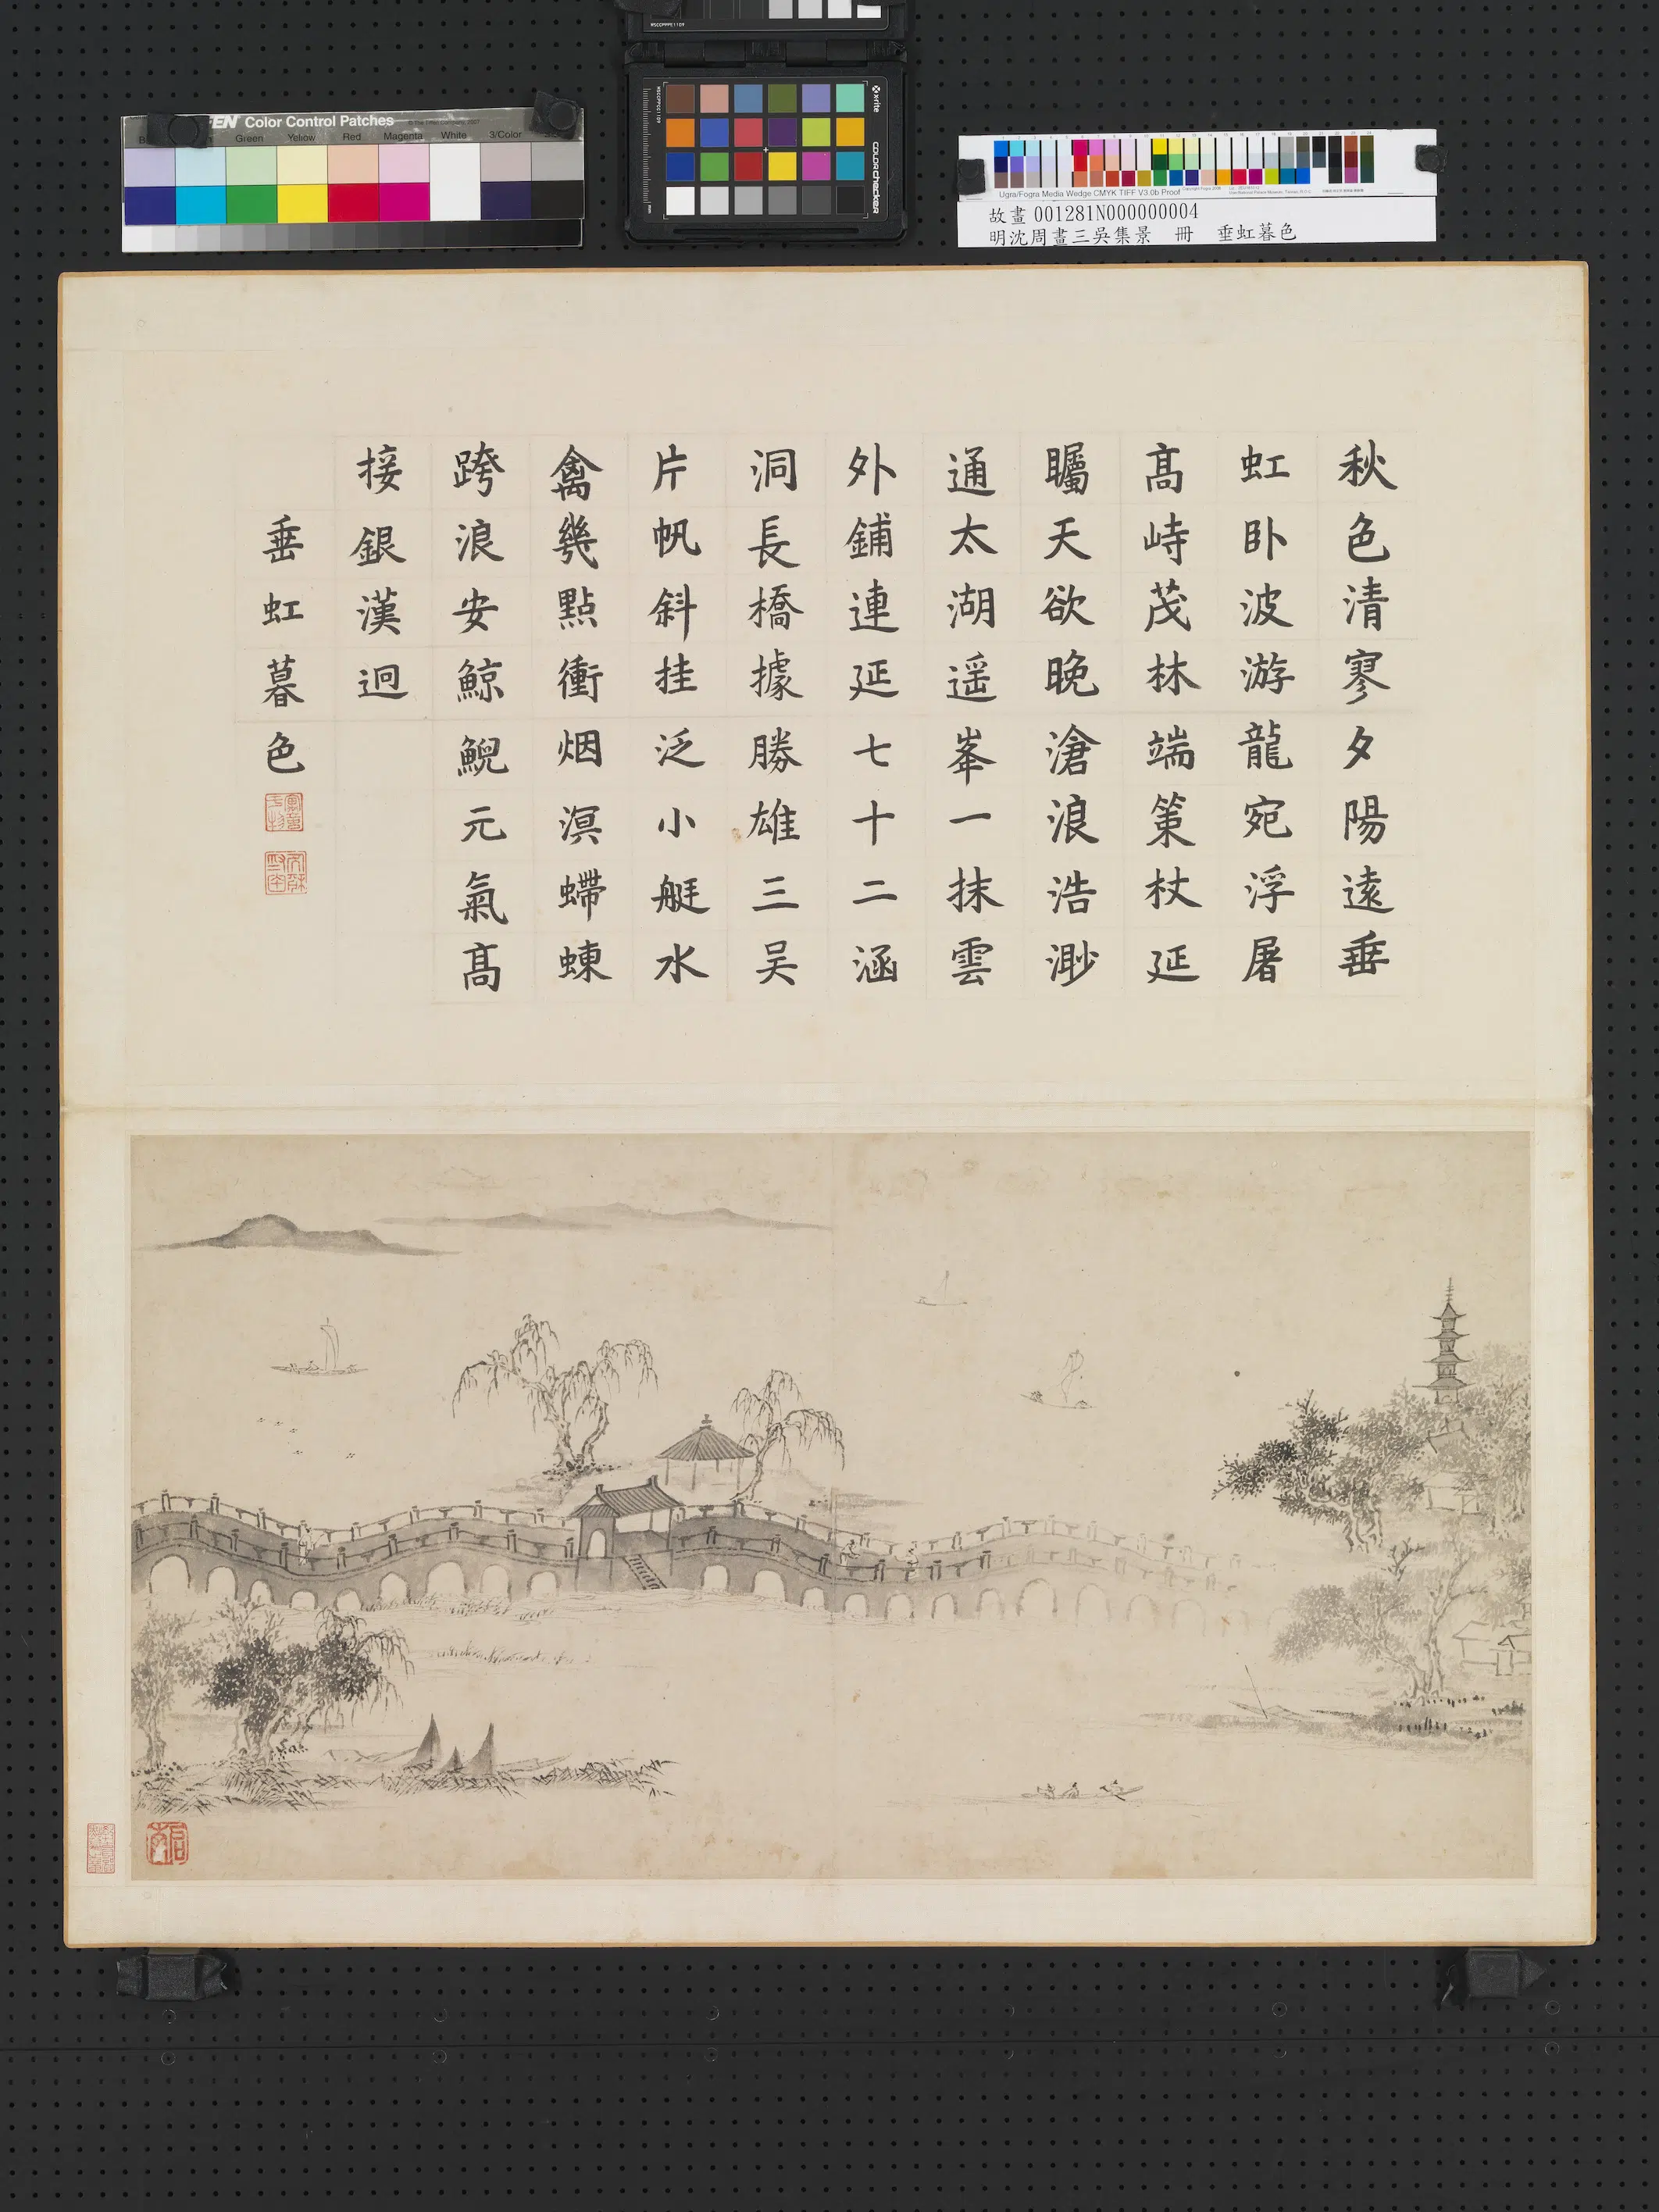 Color Control Patches
Green Yellow Red Magenta White 3/Color
x-rite
colorchecker
Ugra/Fogra Media Wedge CMYK TIFF V3.0b Proof
故畫 001281N000000004
明沈周畫三吳集景 冊 垂虹暮色
秋色清寥夕陽遠垂
虹卧波游龍宛浮屠
高峙茂林端策杖延
矚天欲晚滄浪浩渺
通太湖遥峯一抹雲
外鋪連延七十二涵
洞長橋據勝雄三吴
片帆斜挂泛小艇水
禽幾點衝烟溟螮蝀
跨浪安鯨鯢元氣高
接銀漢迥
垂虹暮色
啟南